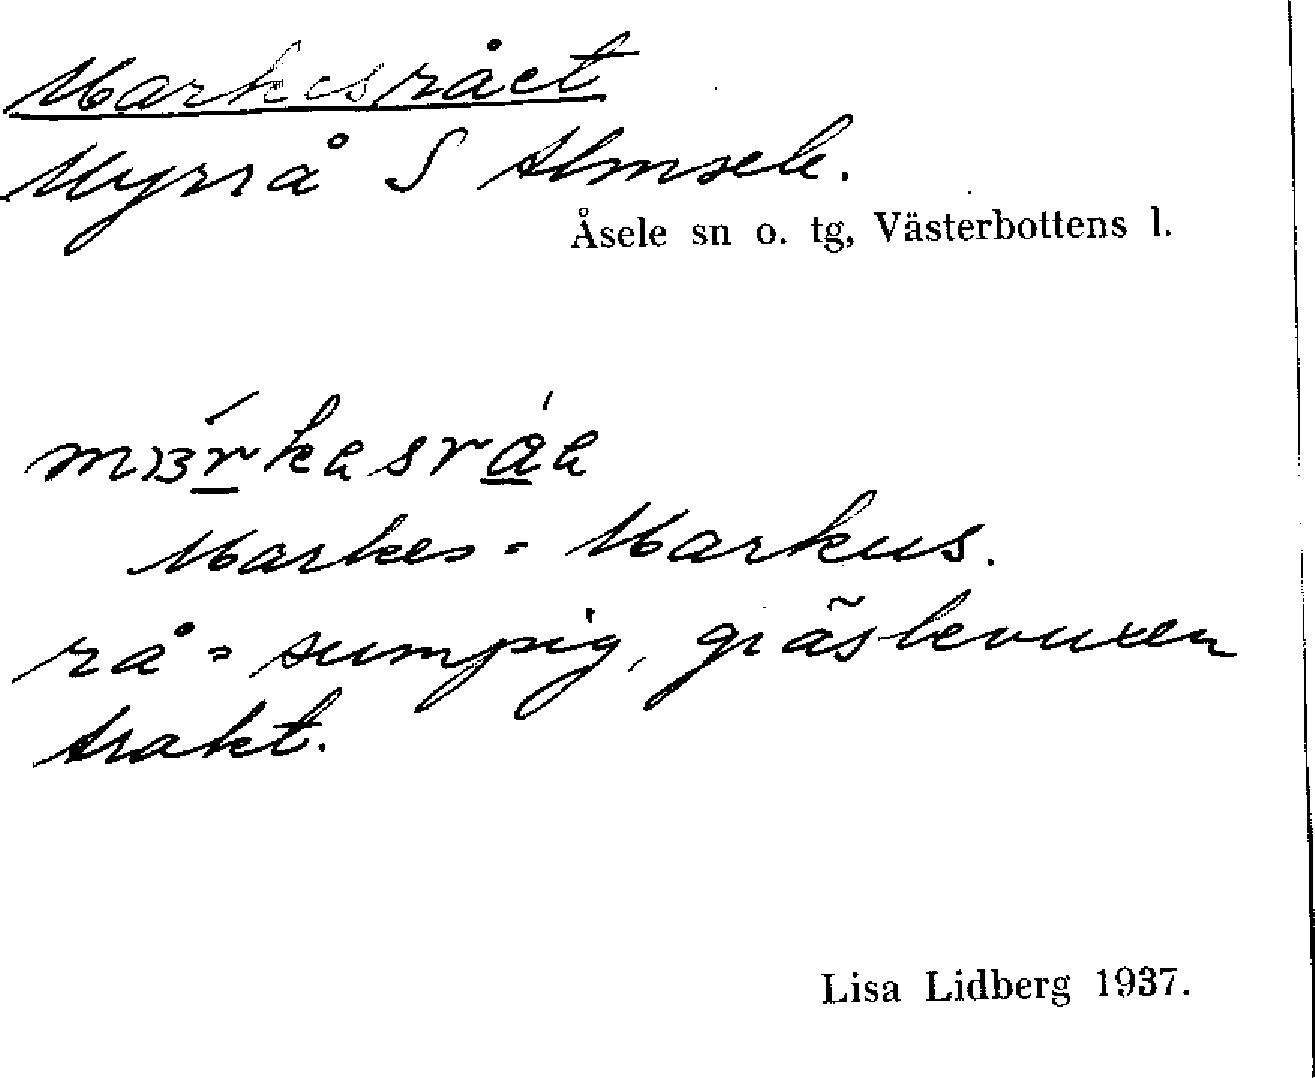 Markesrået
Myrrå S Almsele.
Åsele sn o. tg, Västerbottens l.
Markes = Markus.
rå = sumpig, gräsbevuxen
trakt.
Lisa Lidberg 1937.